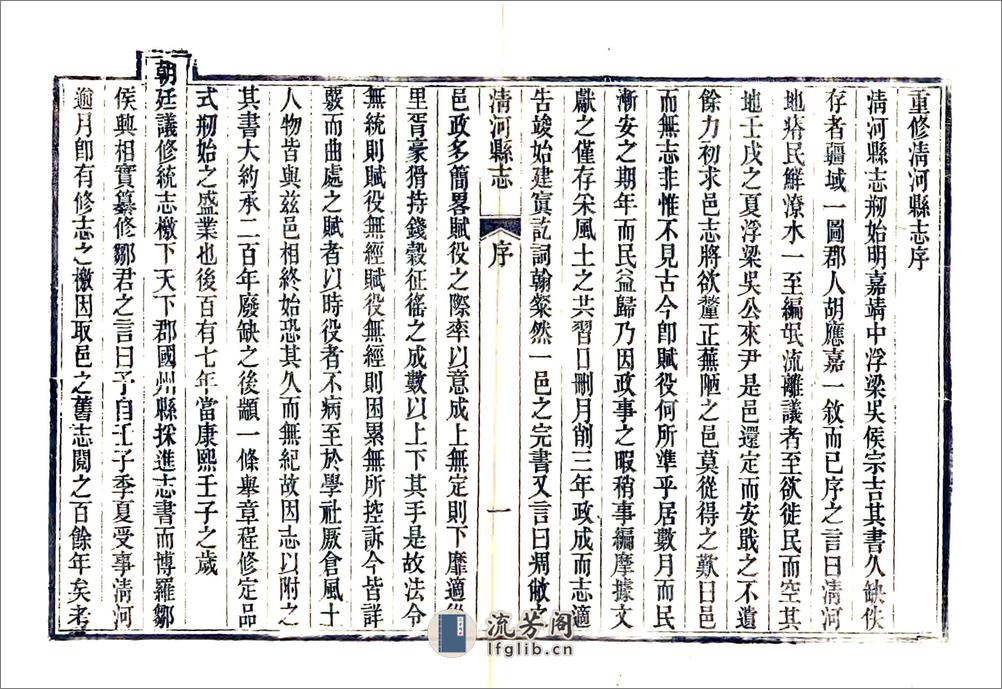 重修清河縣志序
清河縣志刱始明嘉靖中浮梁吳侯宗吉其書久缺佚
存者疆域一圖郡人胡應嘉一敘而已序之言曰清河
地瘠民鮮潦水一至編氓流離議者至欲徙民而空其
地壬戌之夏浮梁吳公來尹是邑還定而安戢之不遺
餘力初求邑志將欲釐正蕪陋之邑莫從得之歎曰邑
而無志非惟不見古今卽賦役何所準乎居數月而民
漸安之期年而民益歸乃因政事之暇稍事編摩據文
獻之僅存采風土之共習日刪月削三年政成而志適
告竣始建寅訖詞翰粲然一邑之完書又言曰凋敝之
清河縣志 序 一
邑政多簡畧賦役之際率以意成上無定則下靡適從
里胥豪猾持錢穀征徭之成數以上下其手是故法令
無統則賦役無經賦役無經則困累無所控訴今皆詳
覈而曲處之賦者以時役者不病至於學社厫倉風土
人物皆與兹邑相終始恐其久而無紀故因志以附之
其書大約承二百年廢缺之後顓一條舉章程修定品
式刱始之盛業也後百有七年當康熙壬子之歲
朝廷議修統志檄下天下郡國州縣採進志書而博羅鄒
侯興相實纂修鄒君之言曰予自壬子季夏受事清河
逾月卽有修志之檄因取邑之舊志閱之百餘年矣考
流芳阁
lfglib.cn